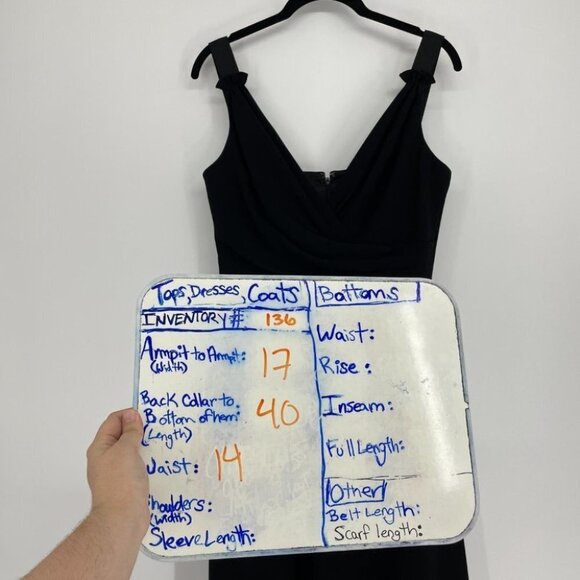 Tops, Dresses, Coats
INVENTORY # 136
Armpit to Armpit: 17
(Width)
Back Collar to
Bottom of hem: 40
(Length)
Waist: 14
Shoulders:
(Width)
Sleeve Length:
Bottoms
Waist:
Rise:
Inseam:
Full Length:
Other
Belt Length:
Scarf length: